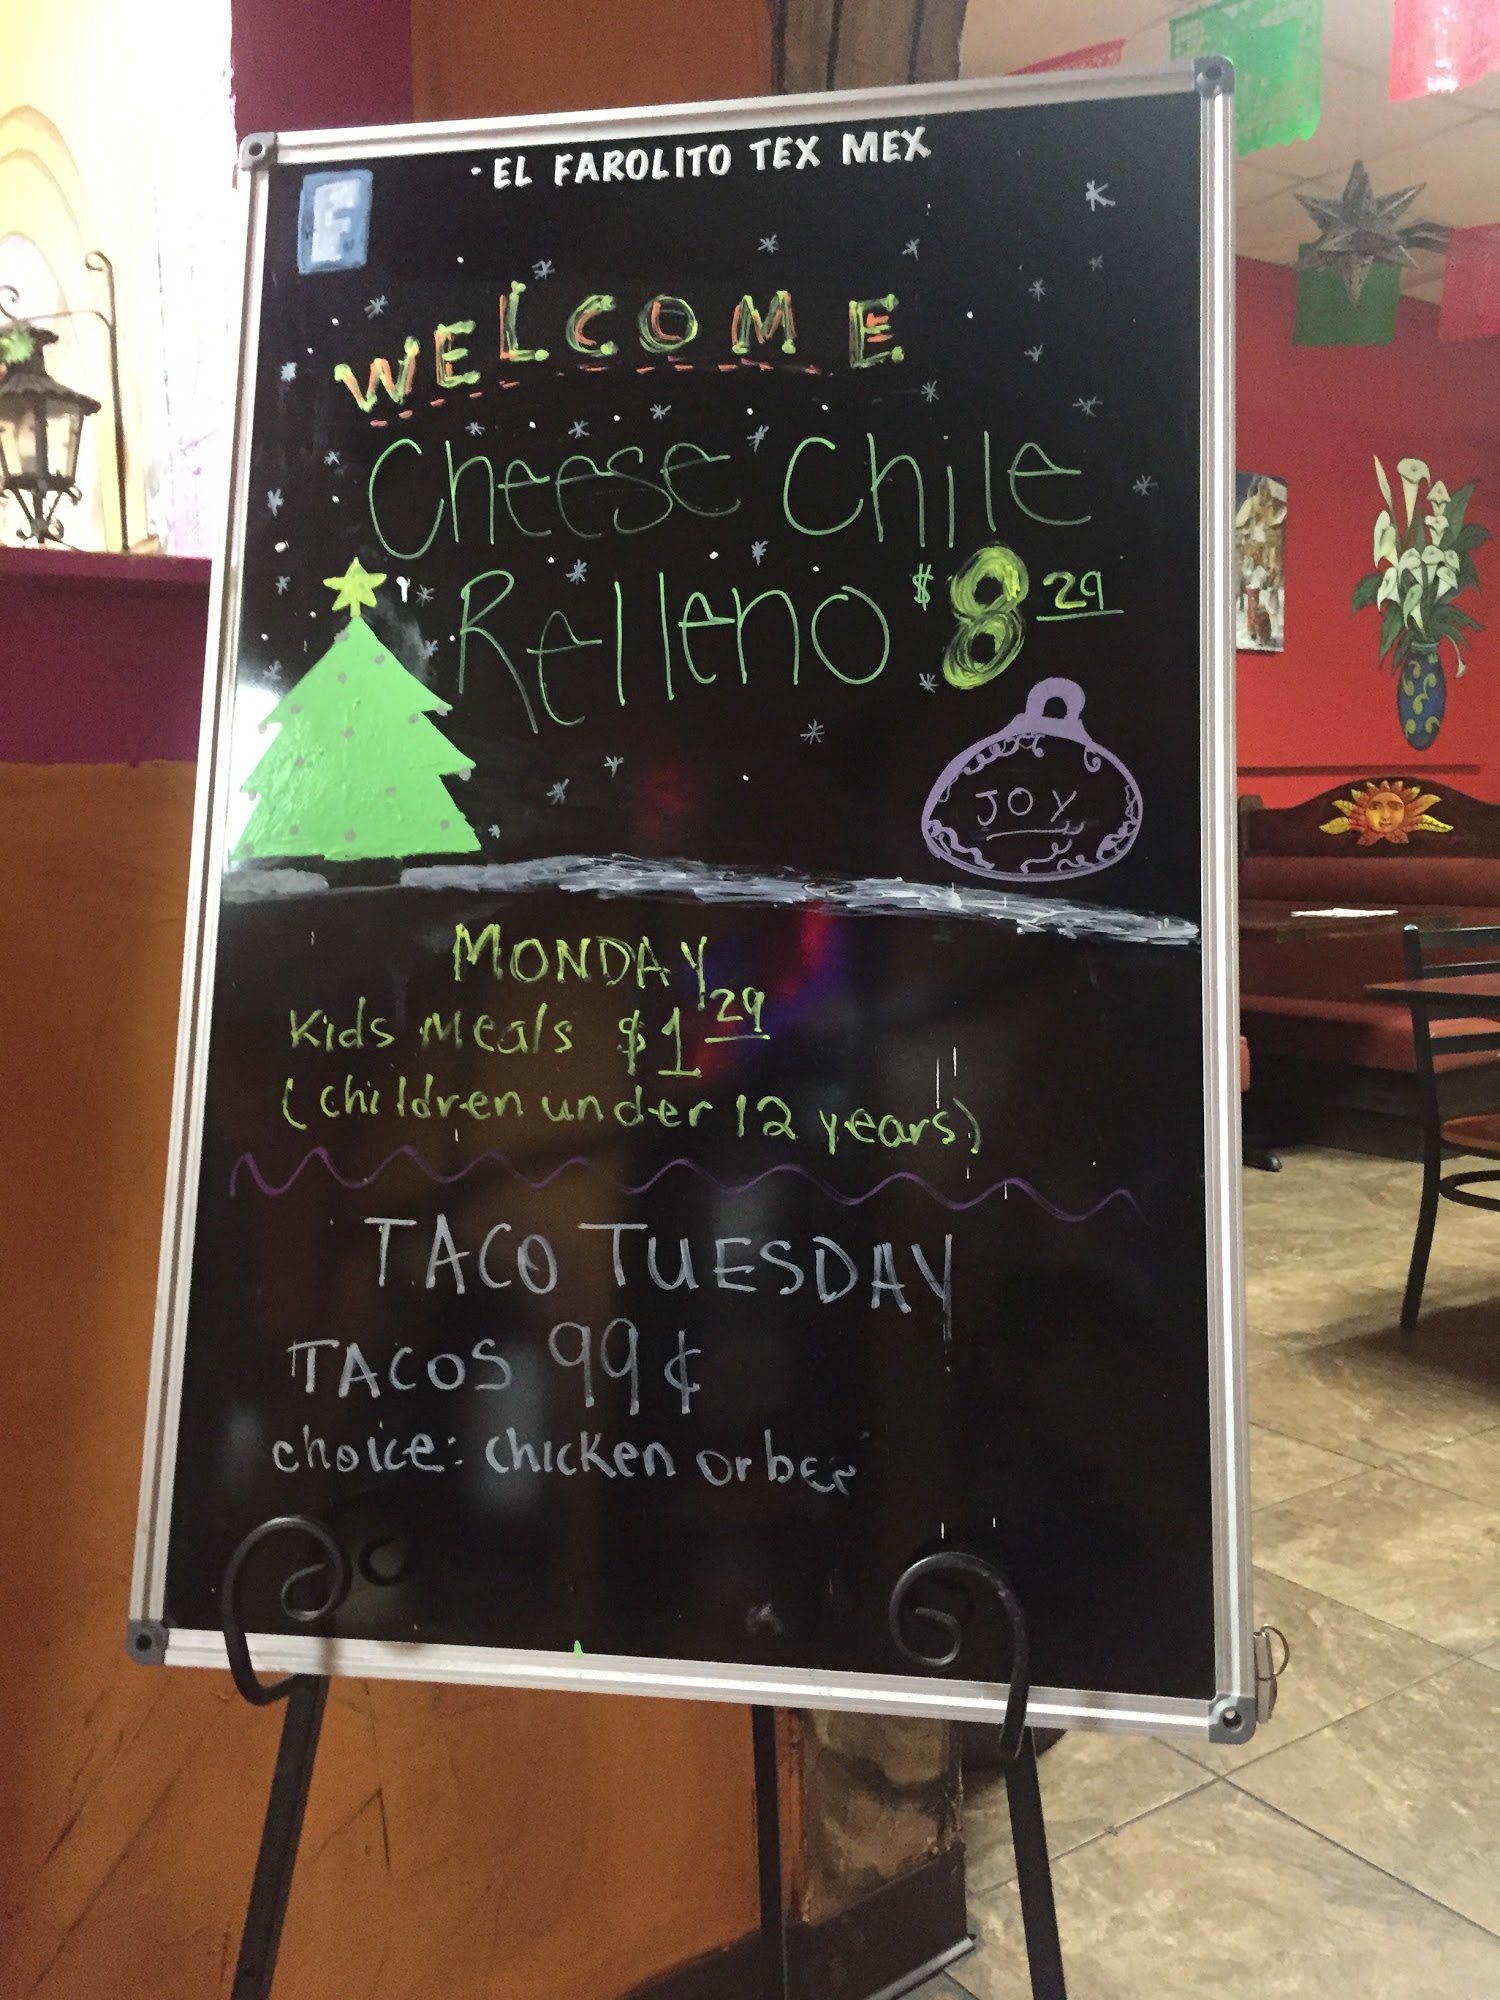 • EL FAROLITO TEX MEX
F
WELCOME
Cheese Chile
Relleno $8 29
JOY
MONDAY
Kids Meals $1 29
(children under 12 years)
TACO TUESDAY
TACOS 99¢
choice: chicken or bee